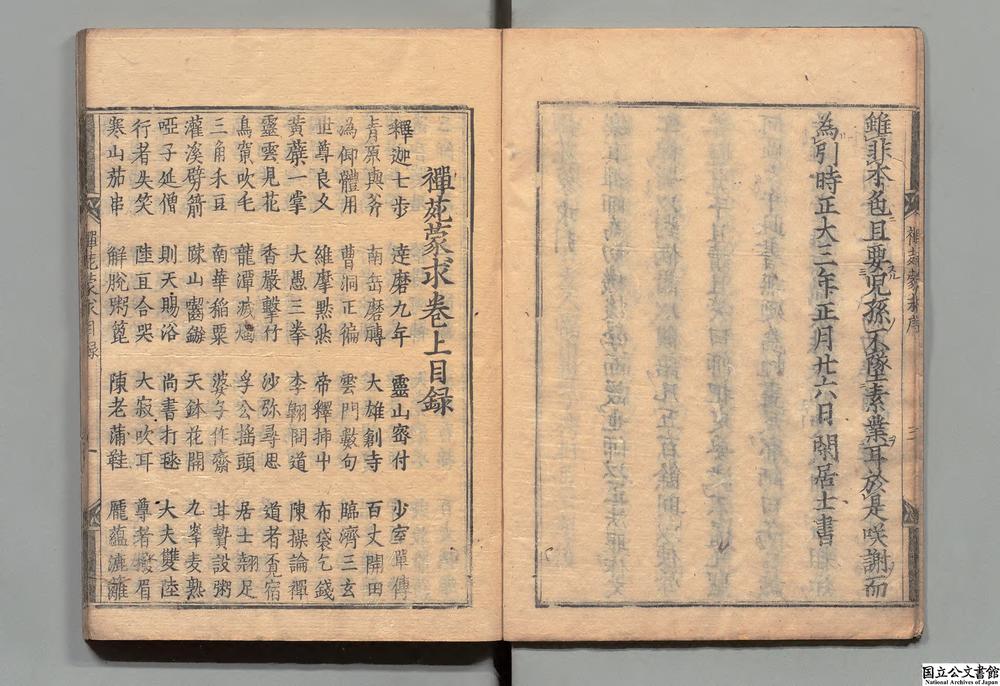 雖非本色且要兒孫不墜素業耳於是咲謝而
為引時正大三年正月廿六日閑居士書
禪苑蒙求序
三
禪苑蒙求卷上目録
釋迦七步 達磨九年 靈山密付 少室單傳
青原與斧 南岳磨磚 大雄創寺 百丈開田
溈仰體用 曹洞正徧 雲門數句 臨濟三玄
世尊良久 維摩默然 帝釋插屮 布袋乞錢
黃蘗一掌 大愚三拳 李翱問道 陳操論禪
靈雲見花 香嚴擊竹 沙弥尋思 道者覔宿
鳥窠吹毛 龍潭滅燭 孚公搖頭 居士翹足
三角禾豆 南華稲粟 婆子作齋 甘贄設粥
灌溪劈箭 踈山齧鏃 天鉢花開 九峯麦熟
啞子延僧 則天賜浴 尚書打毬 大夫雙陸
行者失笑 陸亘合哭 大寂吹耳 尊者撥眉
寒山茄串 解脫粥篦 陳老蒲鞋 龐蘊漉籬
禪苑蒙求目録
一
国立公文書館
National Archives of Japan